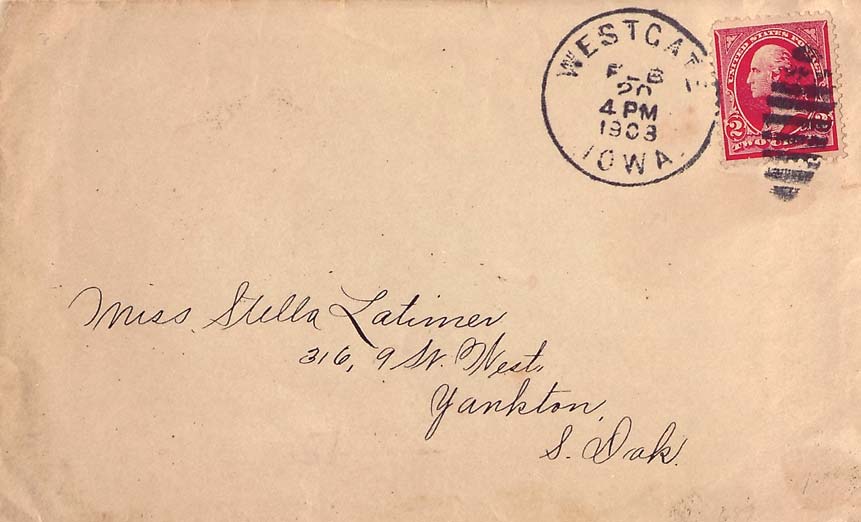 WESTGATE
FEB
20
4 PM
1903
IOWA.
UNITED STATES POSTAGE
2
TWO
Miss Stella Latimer
316, 9 St. West,
Yankton,
S. Dak.